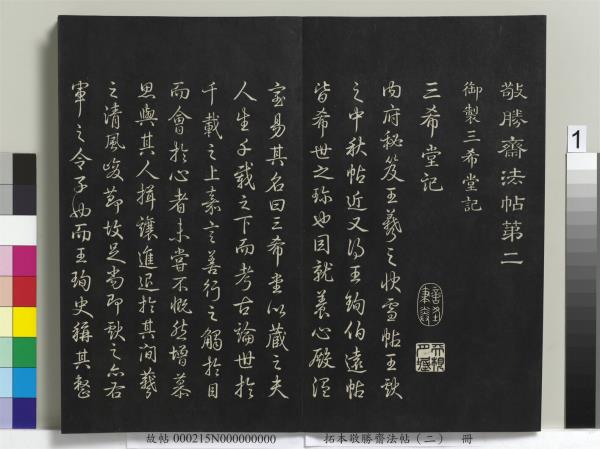 敬勝齋法帖第二
御製三希堂記
三希堂記
內府秘笈王羲之快雪帖王獻
之中秋帖近又得王珣伯遠帖
皆希世之珍也因就養心殿溫
室易其名曰三希堂以藏之夫
人生千載之下而考古論世於
千載之上嘉言善行之觸於目
而會於心者未嘗不慨然增慕
思與其人揖讓進退於其間羲
之清風峻節故足尚即獻之亦右
軍之令子也而王珣史稱其整
1
故帖 000215N000000000
拓本敬勝齋法帖（二） 冊